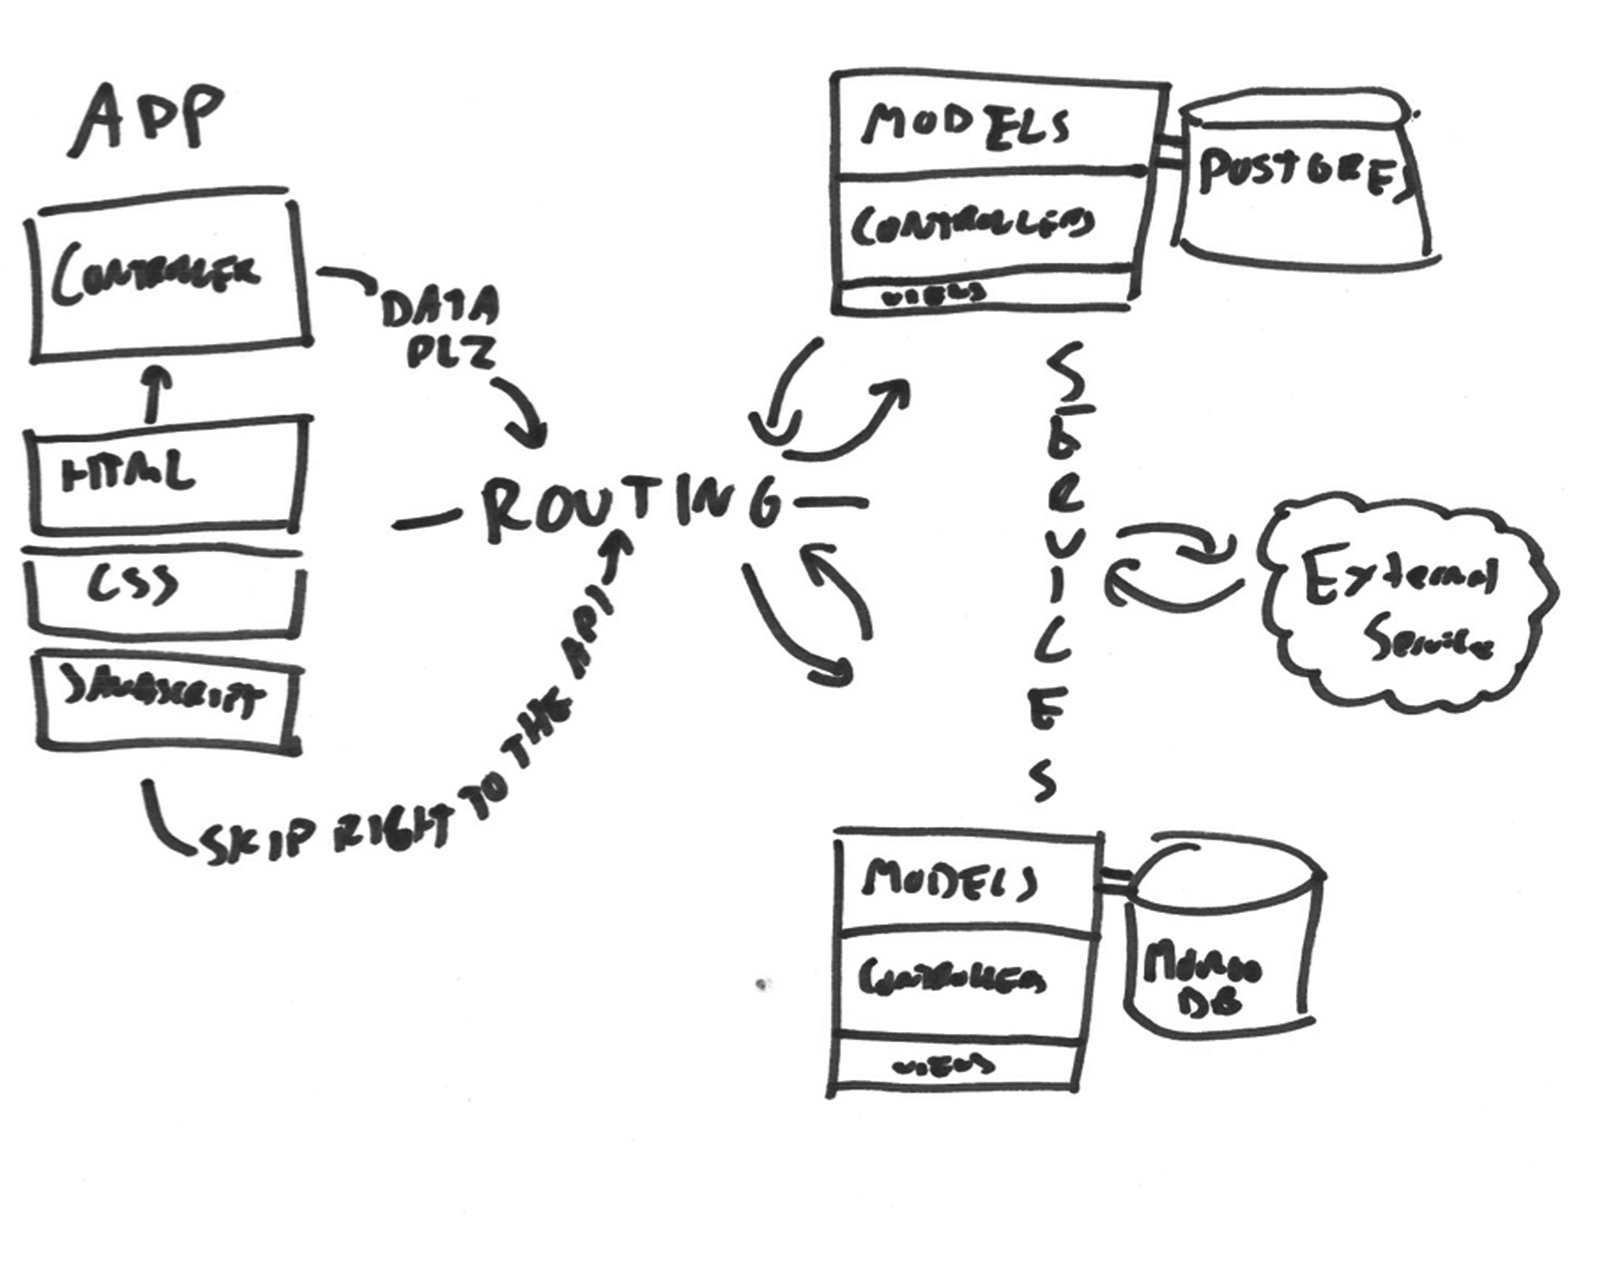 APP
CONTROLLER
HTML
CSS
JAVASCRIPT
DATA
PLZ
ROUTING
SKIP RIGHT TO THE API
MODELS
CONTROLLERS
VIEWS
POSTGRES
SERVICES
External
Service
MODELS
CONTROLLERS
VIEWS
MONGO
DB